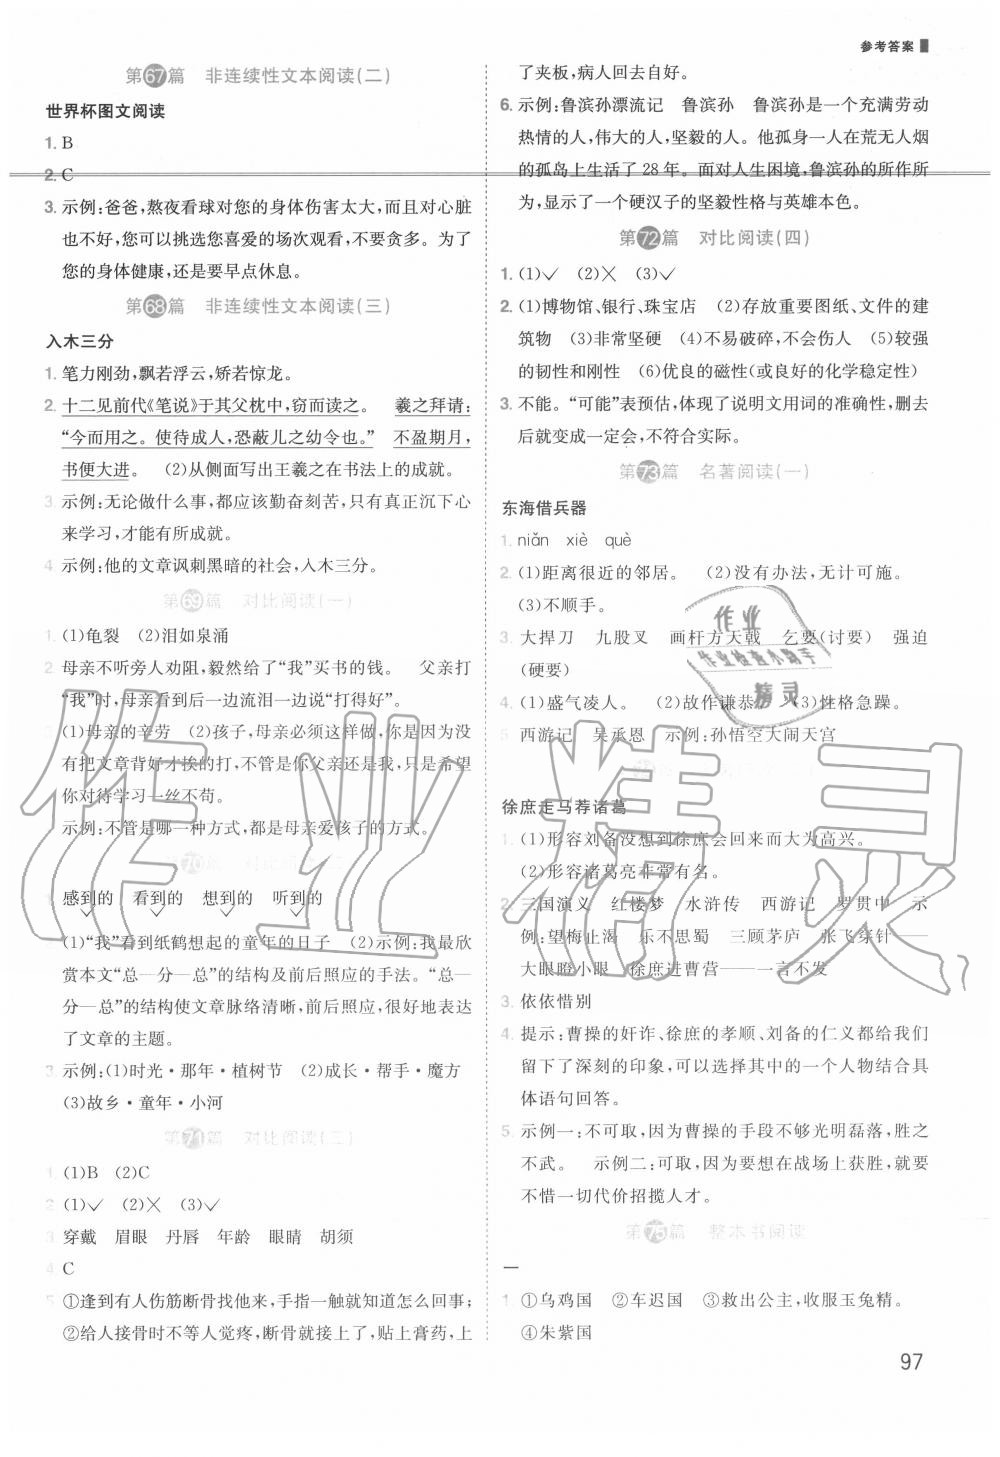 参考答案
第67篇 非连续性文本阅读(二)
世界杯图文阅读
1. B
2. C
3. 示例:爸爸,熬夜看球对您的身体伤害太大,而且对心脏
也不好,您可以挑选您喜爱的场次观看,不要贪多。为了
您的身体健康,还是要早点休息。
第68篇 非连续性文本阅读(三)
入木三分
1. 笔力刚劲,飘若浮云,矫若惊龙。
2. 十二见前代《笔说》于其父枕中,窃而读之。 羲之拜请:
“今而用之。使待成人,恐蔽儿之幼令也。” 不盈期月,
书便大进。 (2)从侧面写出王羲之在书法上的成就。
3. 示例:无论做什么事,都应该勤奋刻苦,只有真正沉下心
来学习,才能有所成就。
4 示例:他的文章讽刺黑暗的社会,入木三分。
第69篇 对比阅读(一)
1. (1)龟裂 (2)泪如泉涌
2. 母亲不听旁人劝阻,毅然给了“我”买书的钱。 父亲打
“我”时,母亲背过身后一边流泪一边说“打得好”。
3. (1)母亲的辛劳 (2)孩子,母亲必须这样做,你是因为没
有把文章背好才挨的打,不管是你父亲还是我,只是希望
你对待学习一丝不苟。
示例:不管是哪一种方式,都是母亲爱孩子的方式。
第70篇 对比阅读(二)
1. 感到的 看到的 想到的 听到的
(1)“我”看到纸鹤想起的童年的日子 (2)示例:我最欣
赏本文“总—分—总”的结构及前后照应的手法。“总—
分—总”的结构使文章脉络清晰,前后照应,很好地表达
了文章的主题。
3. 示例:(1)时光·那年·植树节 (2)成长·帮手·魔方
(3)故乡·童年·小河
第71篇 对比阅读(三)
1. (1)B (2)C
2 (1)✓ (2)╳ (3)✓
3 穿戴 眉眼 丹唇 年龄 眼睛 胡须
4 C
5 ①逢到有人伤筋断骨找他来,手指一触就知道怎么回事;
②给人接骨时不等人觉疼,断骨就接上了,贴上膏药,上
了夹板,病人回去自好。
6. 示例:鲁滨孙漂流记 鲁滨孙 鲁滨孙是一个充满劳动
热情的人,伟大的人,坚毅的人。他孤身一人在荒无人烟
的孤岛上生活了 28 年。面对人生困境,鲁滨孙的所作所
为,显示了一个硬汉子的坚毅性格与英雄本色。
第72篇 对比阅读(四)
1. (1)✓ (2)╳ (3)✓
2. (1)博物馆、银行、珠宝店 (2)存放重要图纸、文件的建
筑物 (3)非常坚硬 (4)不易破碎,不会伤人 (5)较强
的韧性和刚性 (6)优良的磁性(或良好的化学稳定性)
3. 不能。“可能”表预估,体现了说明文用词的准确性,删去
后就变成一定会,不符合实际。
第73篇 名著阅读(一)
东海借兵器
1. niǎn xiè què
2. (1)距离很近的邻居。 (2)没有办法,无计可施。
(3)不顺手。
3. 大捍刀 九股叉 画杆方天戟 乞要(讨要) 强迫
(硬要)
4. (1)盛气凌人。 (2)故作谦恭。 (3)性格急躁。
5 西游记 吴承恩 示例:孙悟空大闹天宫
徐庶走马荐诸葛
1. (1)形容刘备没想到徐庶会回来而大为高兴。
(2)形容诸葛亮非常有名。
2. 三国演义 红楼梦 水浒传 西游记 罗贯中 示
例:望梅止渴 乐不思蜀 三顾茅庐 张飞穿针——
大眼瞪小眼 徐庶进曹营——一言不发
3. 依依惜别
4. 提示:曹操的奸诈、徐庶的孝顺、刘备的仁义都给我们
留下了深刻的印象,可以选择其中的一个人物结合具
体语句回答。
5. 示例一:不可取,因为曹操的手段不够光明磊落,胜之
不武。 示例二:可取,因为要想在战场上获胜,就要
不惜一切代价招揽人才。
第75篇 整本书阅读
一
1. ①乌鸡国 ②车迟国 ③救出公主,收服玉兔精。
④朱紫国
97
作业
作业检查小助手
精灵
作业精灵